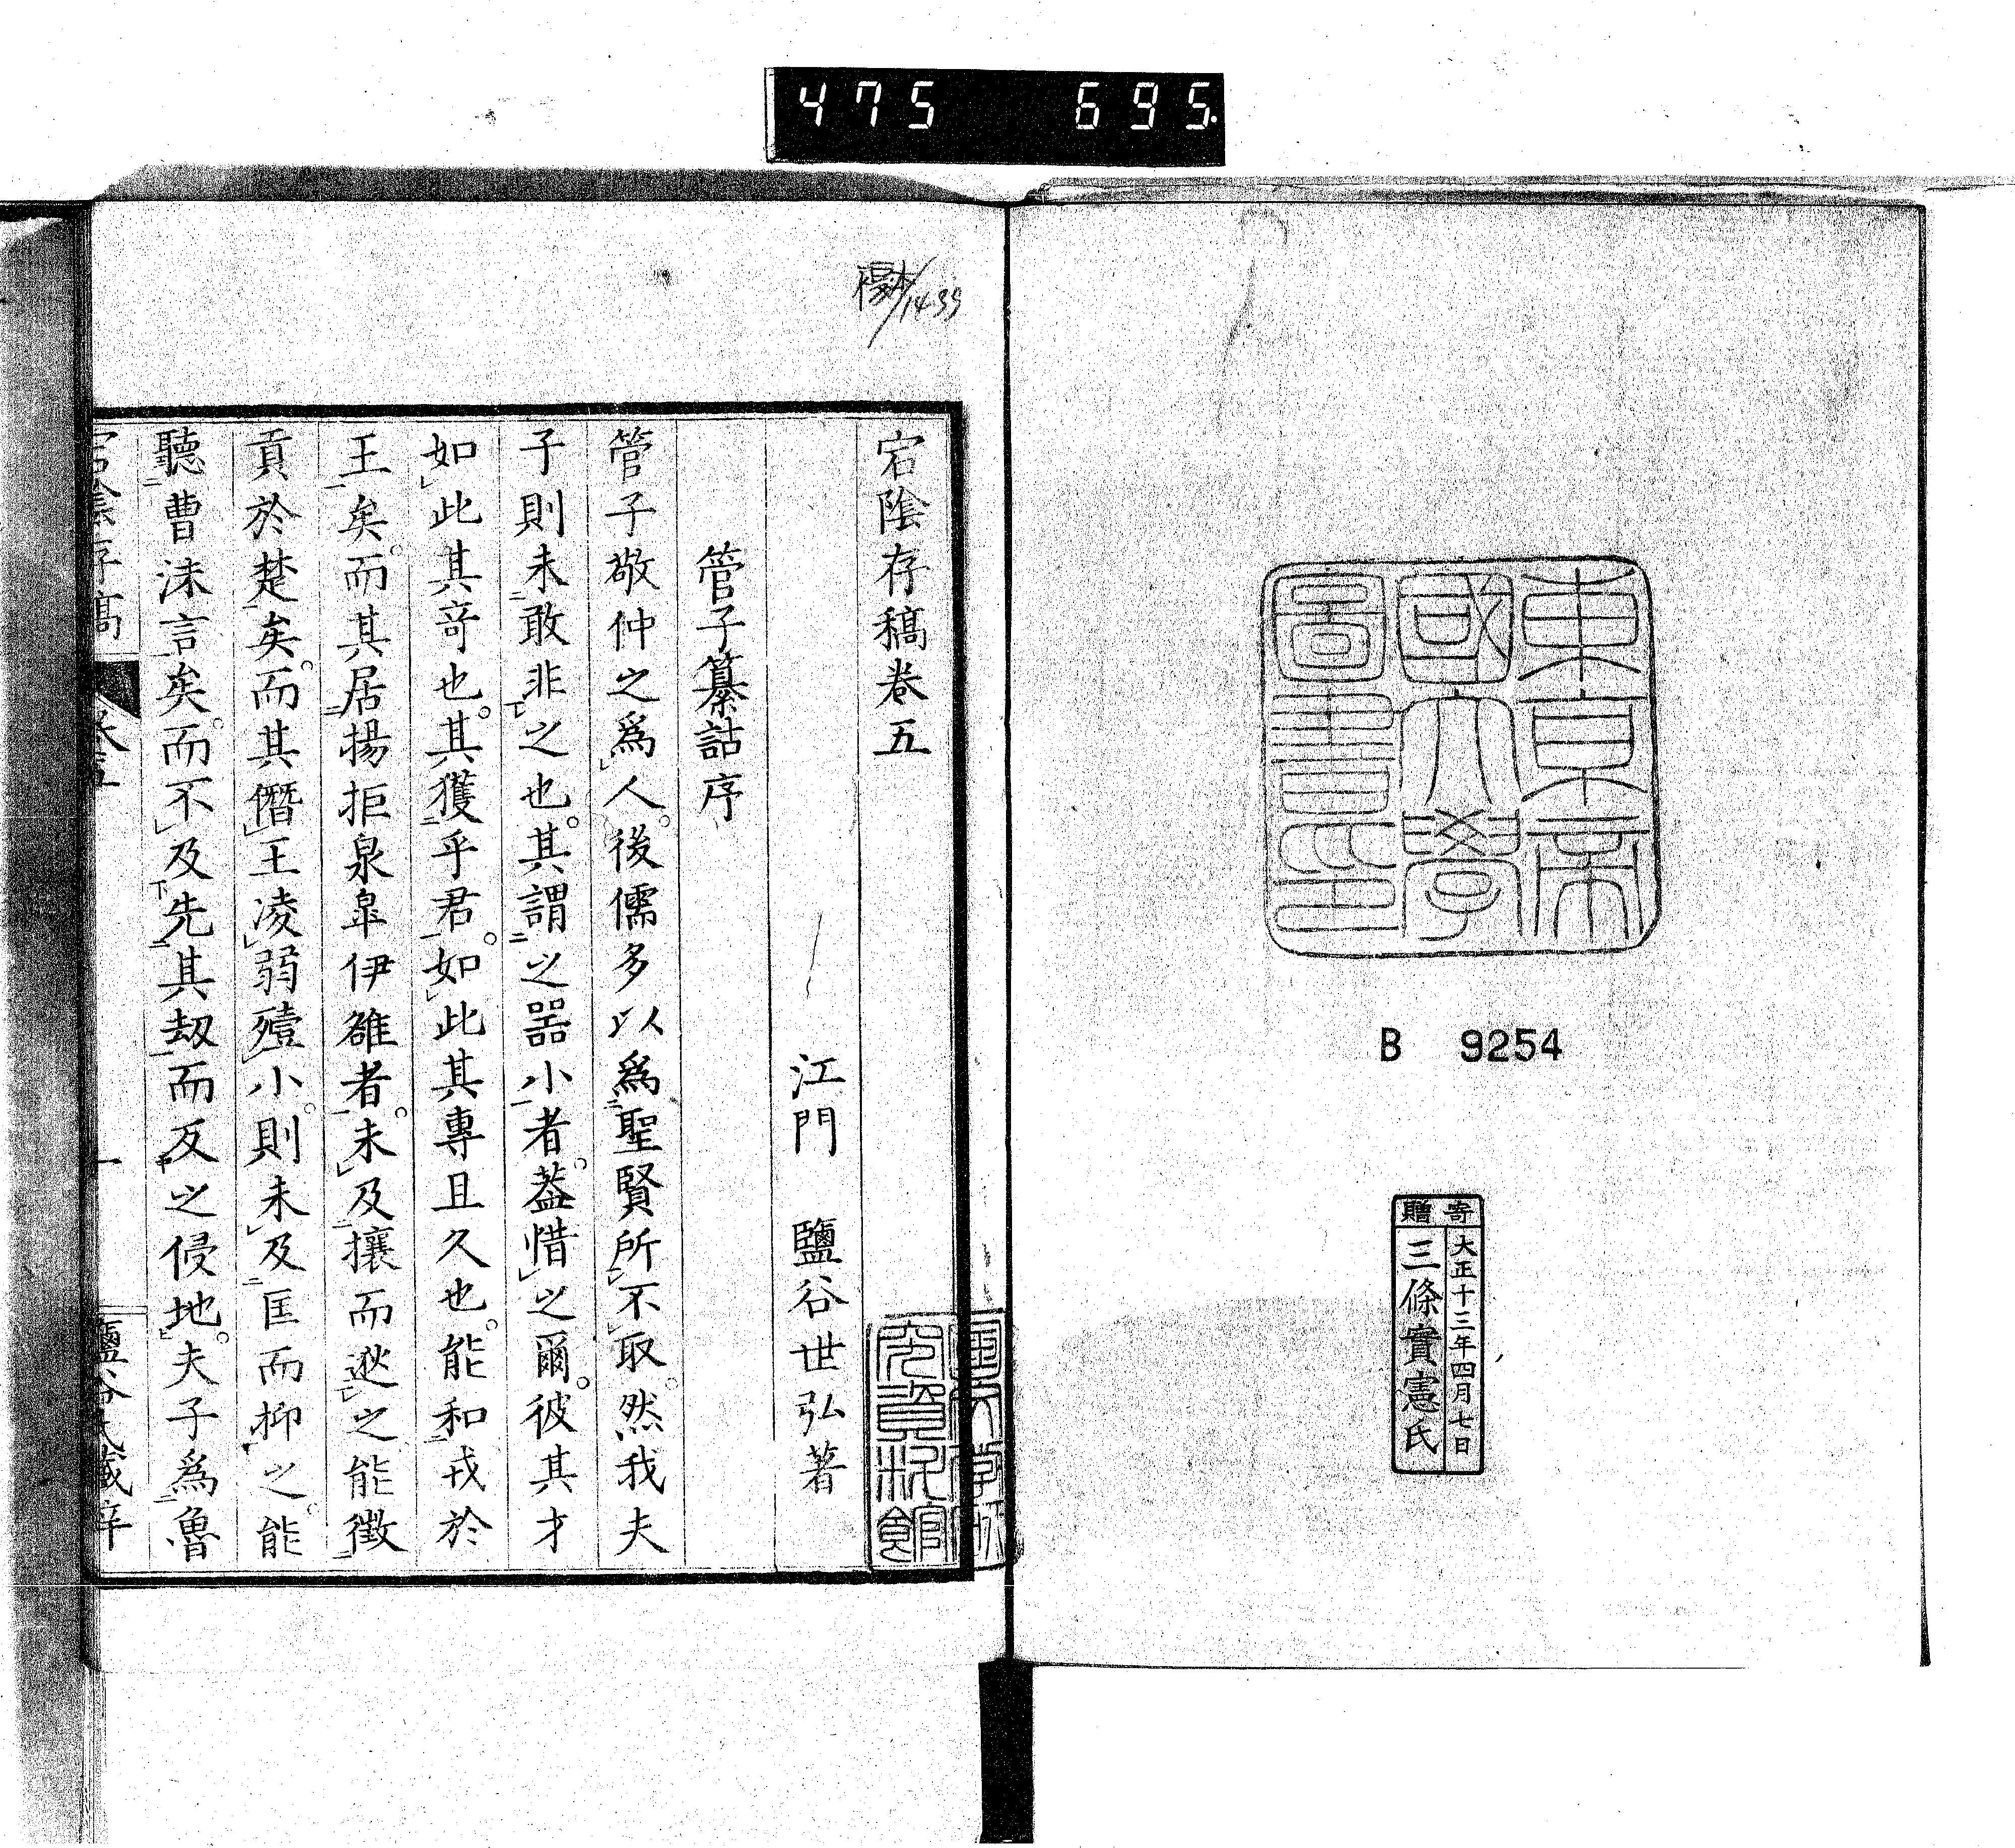 475 695.
東京帝
國大學
圖書印
B 9254
寄贈
大正十三年四月七日
三條實憲氏
14-99
宕陰存稿卷五
江門 鹽谷世弘著
管子纂詁序
管子敬仲之爲人。後儒多以爲聖賢所不取。然我夫
子則未敢非之也。其謂之器小者。葢惜之爾。彼其才
如此其竒也。其獲乎君。如此其專且久也。能和戎於
王矣。而其居揚拒泉皐伊雒者。未及攘而逖之。能徵
貢於楚矣。而其僭王凌弱殪小。則未及匡而抑之。能
聽曹沬言矣。而不及先其刼而反之侵地。夫子爲魯
國文學研
究資料館
宕陰存稿 卷五 一 鹽谷氏藏梓